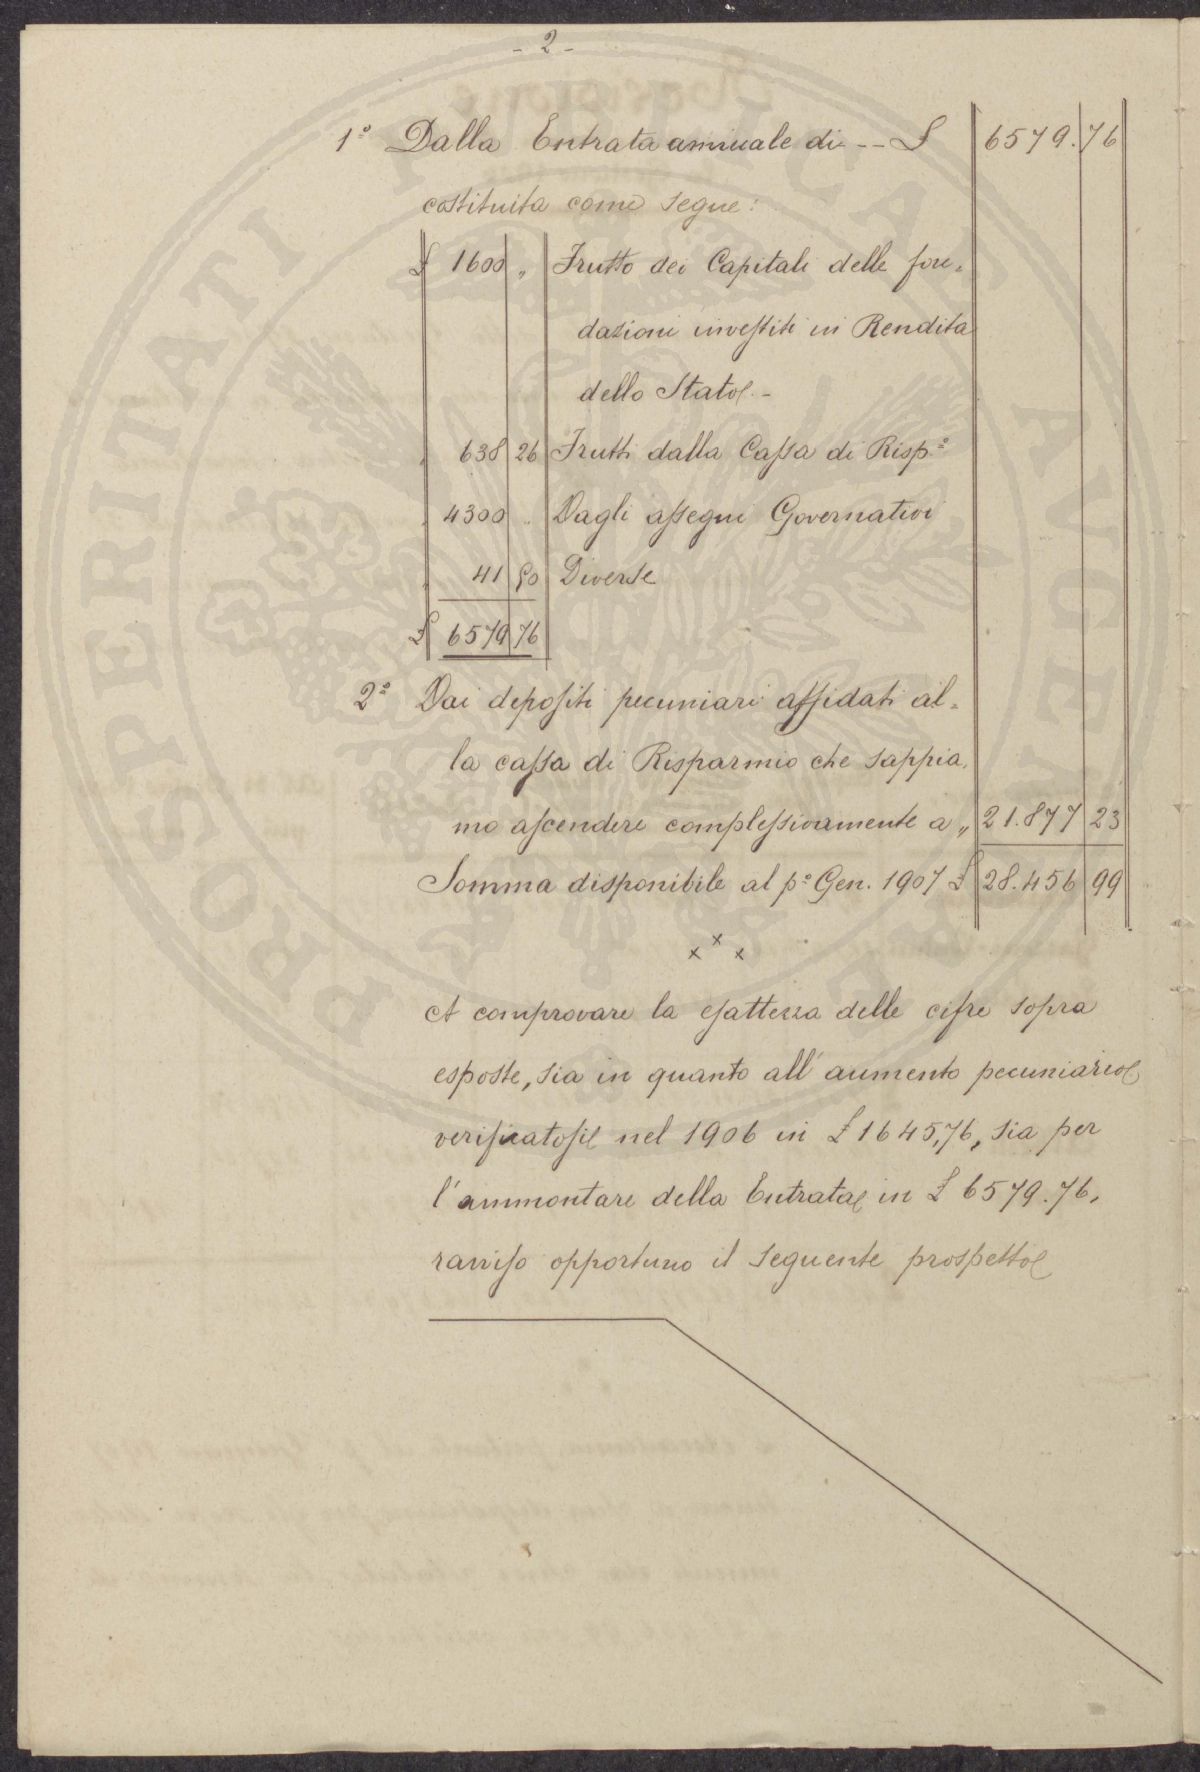 - 2 -
1º Dalla Entrata annuale di -- £ 6579.76
costituita come segue:
£ 1600 „ Frutto dei Capitali delle fon=
dazioni investiti in Rendita
dello Stato.-
„ 638 26 Frutti dalla Cassa di Rispº
„ 4300 „ Dagli assegni Governativi
„ 41 50 Diverse
£ 6579 76
2º Dai depositi pecuniari affidati al=
la cassa di Risparmio che sappia=
mo ascendere complessivamente a „ 21.877 23
Somma disponibile al pº Gen. 1907 £ 28.456 99
x x x
A comprovare la esattezza delle cifre sopra
esposte, sia in quanto all'aumento pecuniario
verificatosi nel 1906 in £ 1645,76, sia per
l'ammontare della Entrata in £ 6579.76,
ravviso opportuno il seguente prospetto
PROSPERITATI PUBLICAE AUGENDAE